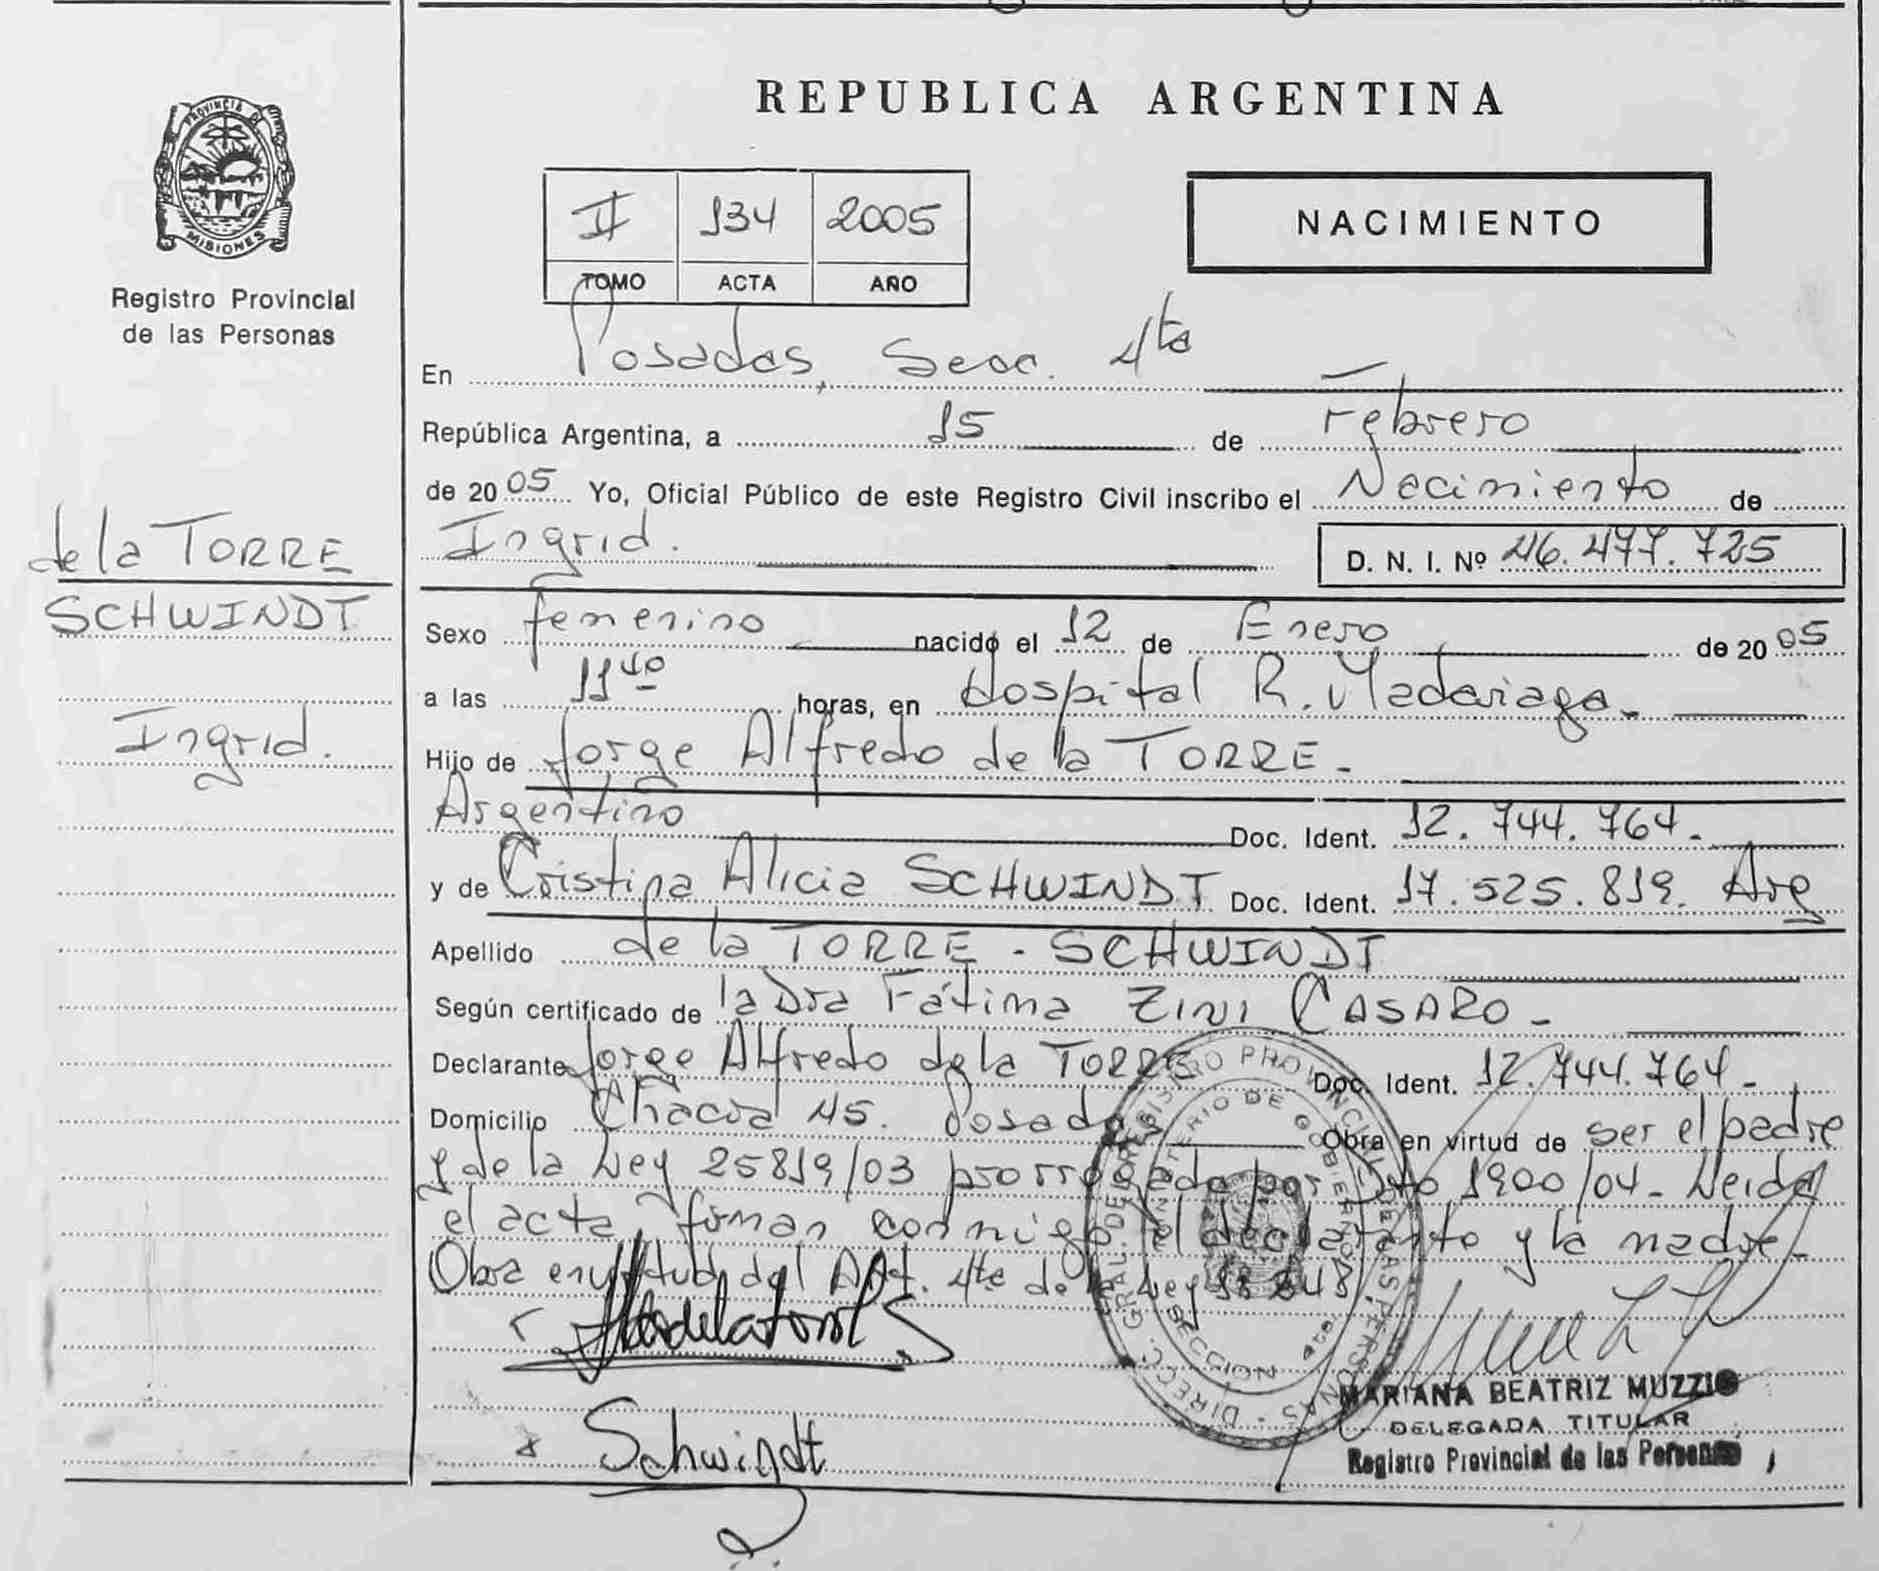 REPUBLICA ARGENTINA
PROVINCIA DE
MISIONES
Registro Provincial
de las Personas
de la TORRE
SCHWINDT
Ingrid.
II 134 2005
TOMO ACTA AÑO
NACIMIENTO
En Posadas, Secc. 4ta
República Argentina, a 15 de Febrero
de 2005 Yo, Oficial Público de este Registro Civil inscribo el Nacimiento de
Ingrid. D. N. I. Nº 46.477.725
Sexo femenino nacido el 12 de Enero de 2005
a las 11 40 horas, en Hospital R. Madariaga.
Hijo de Jorge Alfredo de la TORRE.
Argentino Doc. Ident. 12.744.764.
y de Cristina Alicia SCHWINDT Doc. Ident. 17.525.819. Arg
Apellido de la TORRE - SCHWINDT
Según certificado de la Dra Fátima ZINI CASARO -
Declarante Jorge Alfredo de la TORRE Doc. Ident. 12.744.764 -
Domicilio Chacra 45. Posadas Obra en virtud de ser el padre
y de la Ley 25819/03 prorrogada por Dto 1900/04 - Leida
el acta, firman conmigo el declarante y la madre.
Obra en virtud del Art. 4to de la Ley
DIREC. GRAL. DE REGISTRO PROVINCIAL DE LAS PERSONAS
MINISTERIO DE GOBIERNO
SECCION 4ta
Schwindt
MARIANA BEATRIZ MUZZIO
DELEGADA TITULAR
Registro Provincial de las Personas